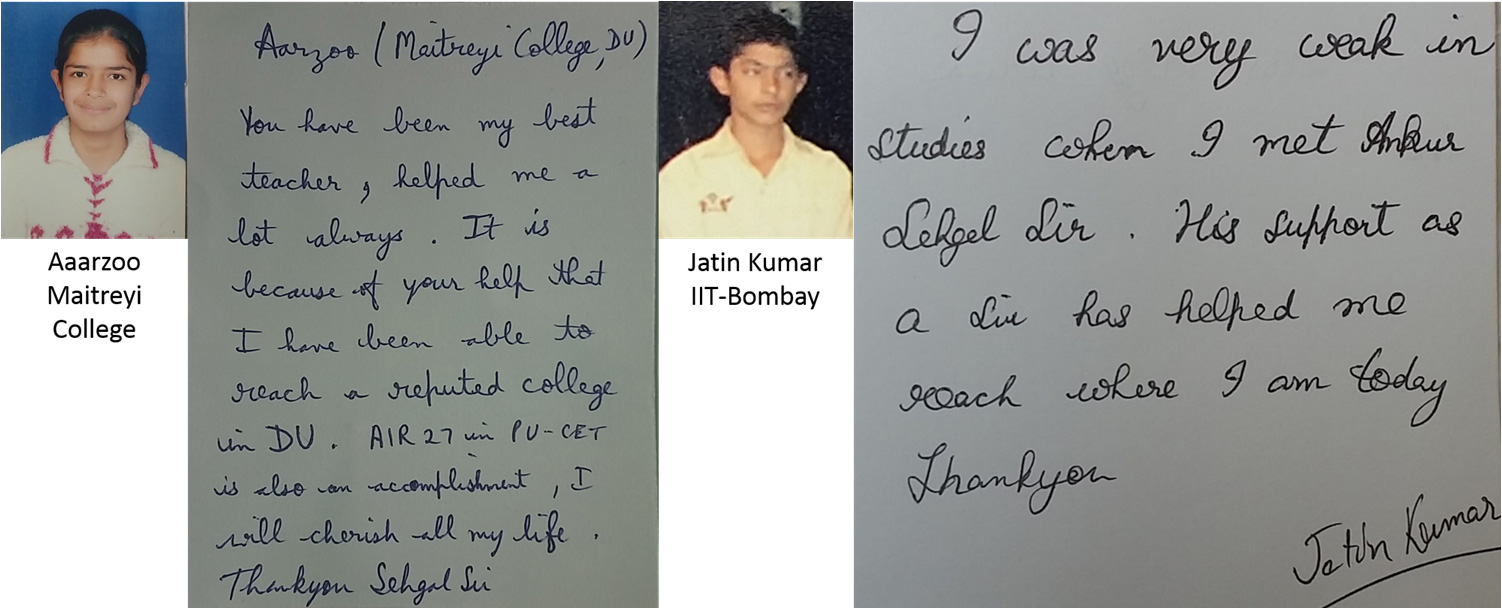 Aaarzoo
Maitreyi
College
Aarzoo (Maitreyi College, DU)
You have been my best
teacher, helped me a
lot always. It is
because of your help that
I have been able to
reach a reputed college
in DU. AIR 27 in PU-CET
is also an accomplishment, I
will cherish all my life.
Thankyou Sehgal Sir
Jatin Kumar
IIT-Bombay
I was very weak in
studies when I met Ankur
Sehgel Sir. His support as
a Sir has helped me
reach where I am today
Thankyou
Jatin Kumar